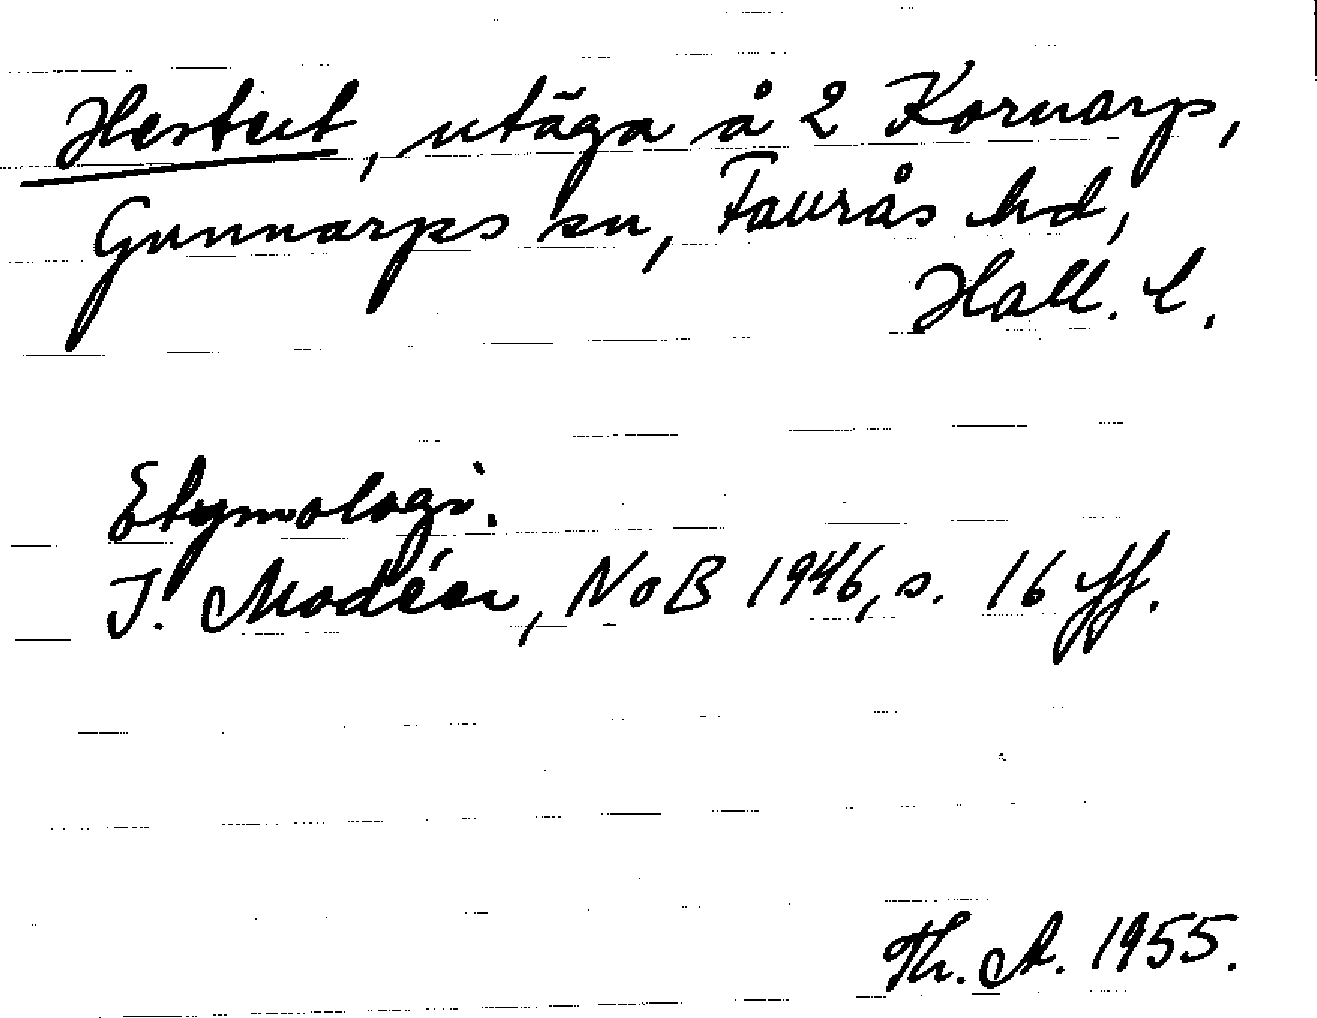 Hestert, utäga å 2 Kornarp,
Gunnarps sn, Faurås hd,
Hall. l.
Etymologi.
I. Modéer, NoB 1946, s. 16 ff.
Th. A. 1955.